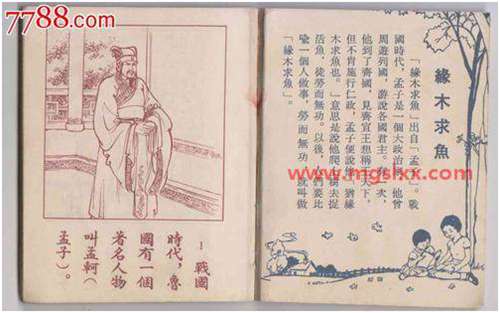 7788.com
緣木求魚
「緣木求魚」出自「孟子」。戰
國時代，孟子是一個大政治家，他曾
周遊列國，游說各國君主。有一次，
他到了齊國，見齊宣王想稱霸天下，
但不肯施行仁政，孟子便說：「猶緣
木求魚也。」意思是說他爬上樹去捉
活魚，徒勞而無功。以後，人們要比
喻一個人做事，勞而無功，就叫做
「緣木求魚」。
www.mgslkx.com
1 戰國
時代，魯
國有一個
著名人物
叫孟軻（
孟子）。